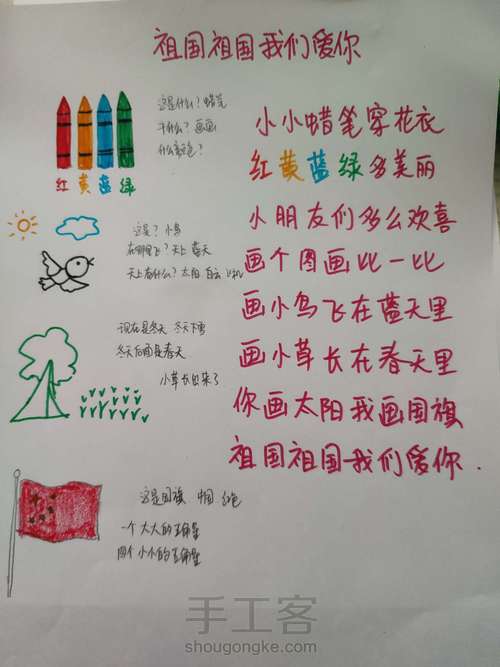 祖国祖国我们爱你
这是什么？蜡笔
干什么？画画
什么颜色？
红黄蓝绿
小小蜡笔穿花衣
红黄蓝绿多美丽
小朋友们多么欢喜
画个图画比一比
画小鸟飞在蓝天里
画小草长在春天里
你画太阳我画国旗
祖国祖国我们爱你.
这是？小鸟
在哪里飞？天上 蓝天
天上有什么？太阳 白云
现在是冬天 冬天下雪
冬天后面是春天
小草长出来了
这是国旗 中国 红色
一个大大的五角星
四个小小的五角星
手工客
shougongke.com